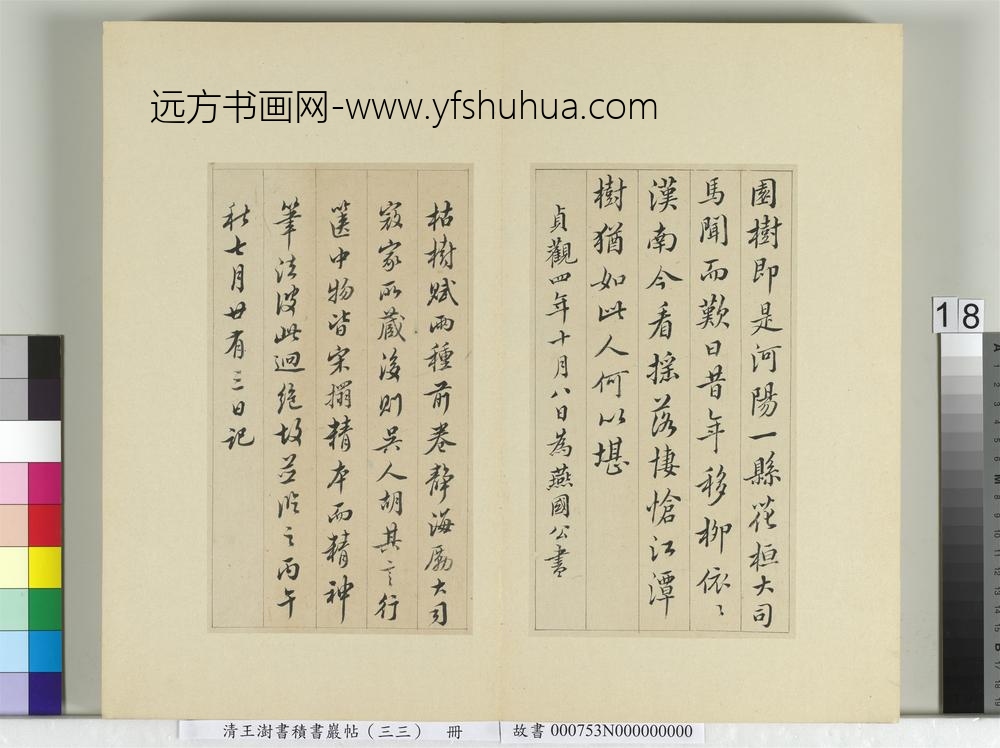 远方书画网-www.yfshuhua.com
園樹即是河陽一縣花桓大司
馬聞而歎曰昔年移柳依〻
漢南今看搖落悽愴江潭
樹猶如此人何以堪
貞觀四年十月八日為燕國公書
枯樹賦兩種前卷靜海勵大司
寇家所藏後則吳人胡其言行
篋中物皆宋搨精本而精神
筆法彼此迥絕故並臨之丙午
秋七月廿有三日記
18
清王澍書積書巖帖（三三） 冊
故書 000753N000000000